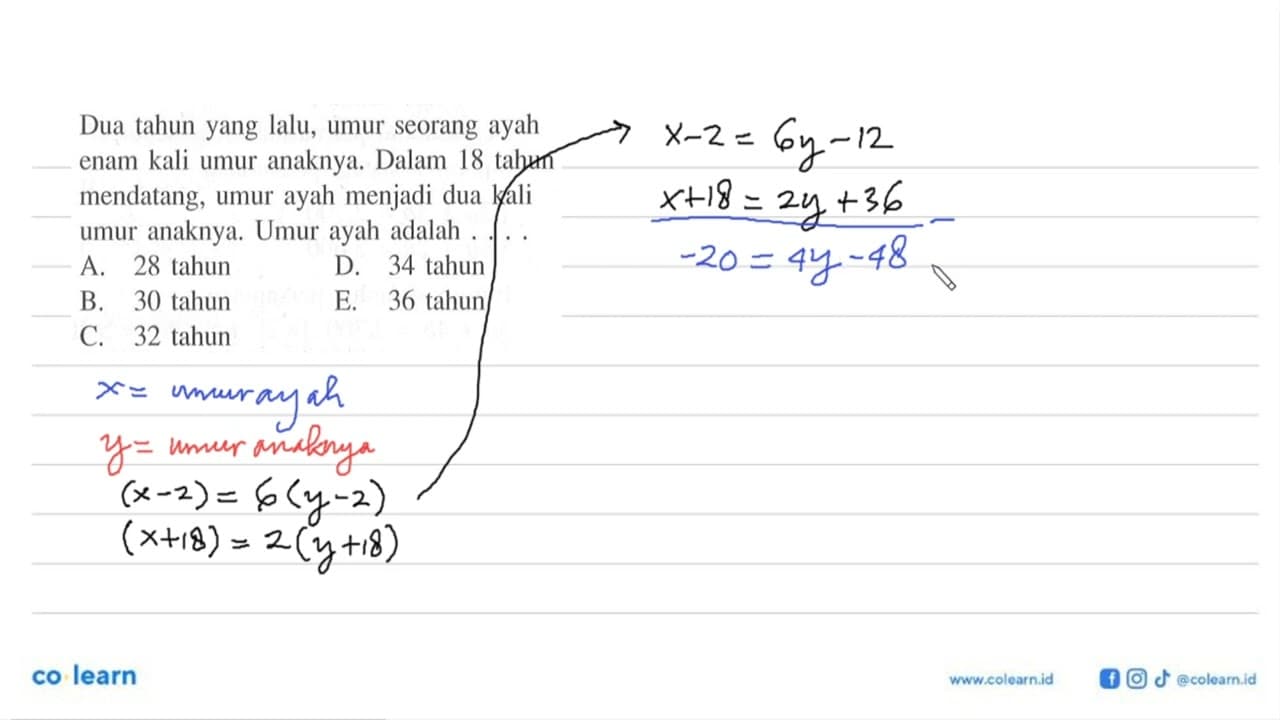 Dua tahun yang lalu, umur seorang ayah
enam kali umur anaknya. Dalam 18 tahun
mendatang, umur ayah menjadi dua kali
umur anaknya. Umur ayah adalah . . . .
A. 28 tahun D. 34 tahun
B. 30 tahun E. 36 tahun
C. 32 tahun
x = umur ayah
y = umur anaknya
(x-2) = 6(y-2)
(x+18) = 2(y+18)
x-2 = 6y-12
x+18 = 2y+36
-20 = 4y-48
co learn
www.colearn.id
@colearn.id